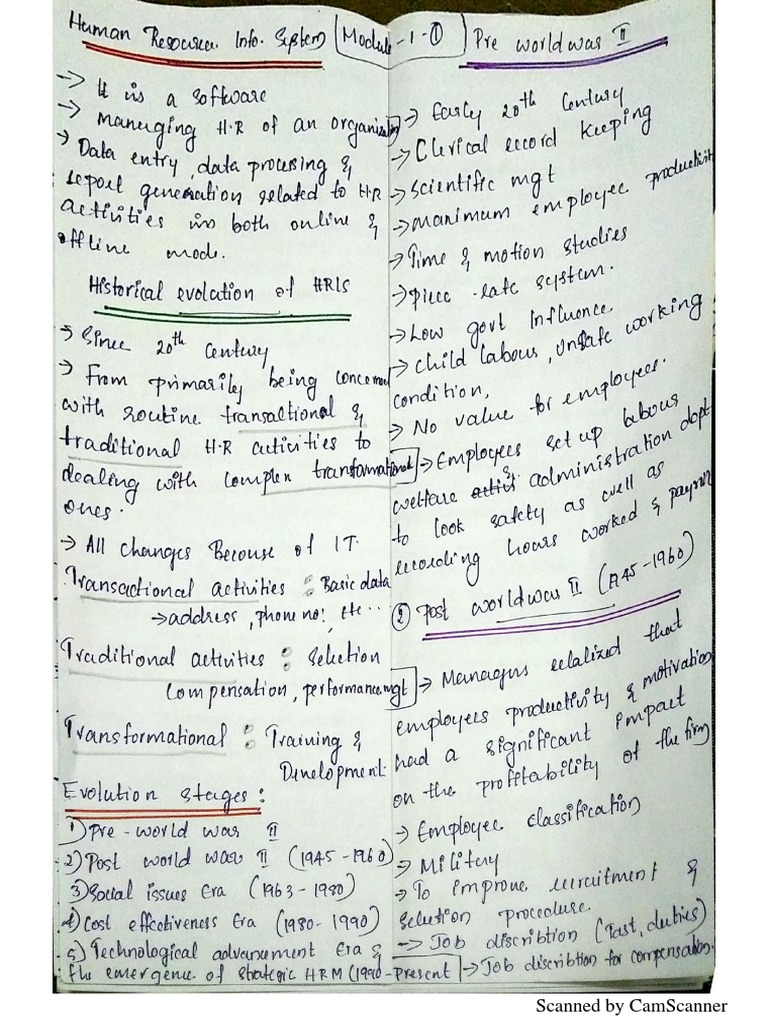 Human Resource Info. System
Module-1-①
→ It is a software
→ Managing H.R of an organisation
→ Data entry, data processing &
report generation related to HR
activities in both online &
offline mode.
Historical evolution of HRIS
→ Since 20th Century
→ From primarily being concerned
with routine transactional &
traditional H.R activities to
dealing with complex transformational
ones.
→ All changes Because of IT.
Transactional activities : Basic data
→ address, phone no:, etc..
Traditional activities : Selection
compensation, performance mgt
Transformational : Training &
Development
Evolution stages :
1) Pre-world war II
2) Post world war II (1945-1960)
3) Social issues Era (1963-1980)
4) Cost effectiveness Era (1980-1990)
5) Technological advancement Era &
the emergence of strategic HRM (1990-Present
Pre world was II
→ Early 20th Century
→ Clerical record keeping
→ Scientific mgt
→ Maximum employee production
→ Time & motion studies
→ Piece-rate system.
→ Low govt influence.
→ Child labour, Unsafe working
condition,
→ No value for employees.
→ Employees set up labour
welfare & administration dept
to look safety as well as
recording hours worked & payroll
② Post world was II (1945-1960)
→ Managers relalized that
employees productivity & motivation
had a significant impact
on the profitability of the firm
→ Employee classification
→ Military
→ To improve recruitment &
selection procedure.
→ Job discribtion (Tast, duties)
→ Job discribtion for compensation.
Scanned by CamScanner